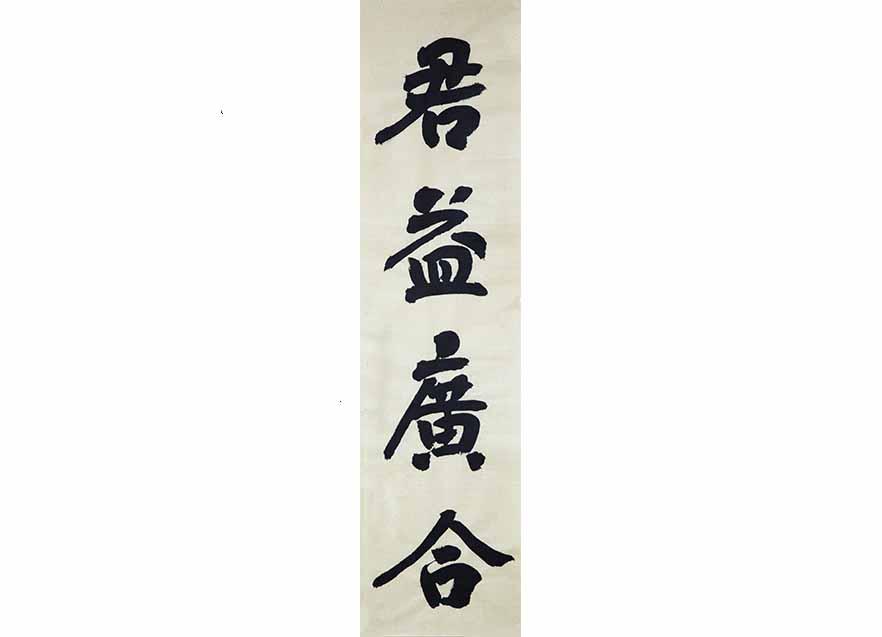 君益廣合